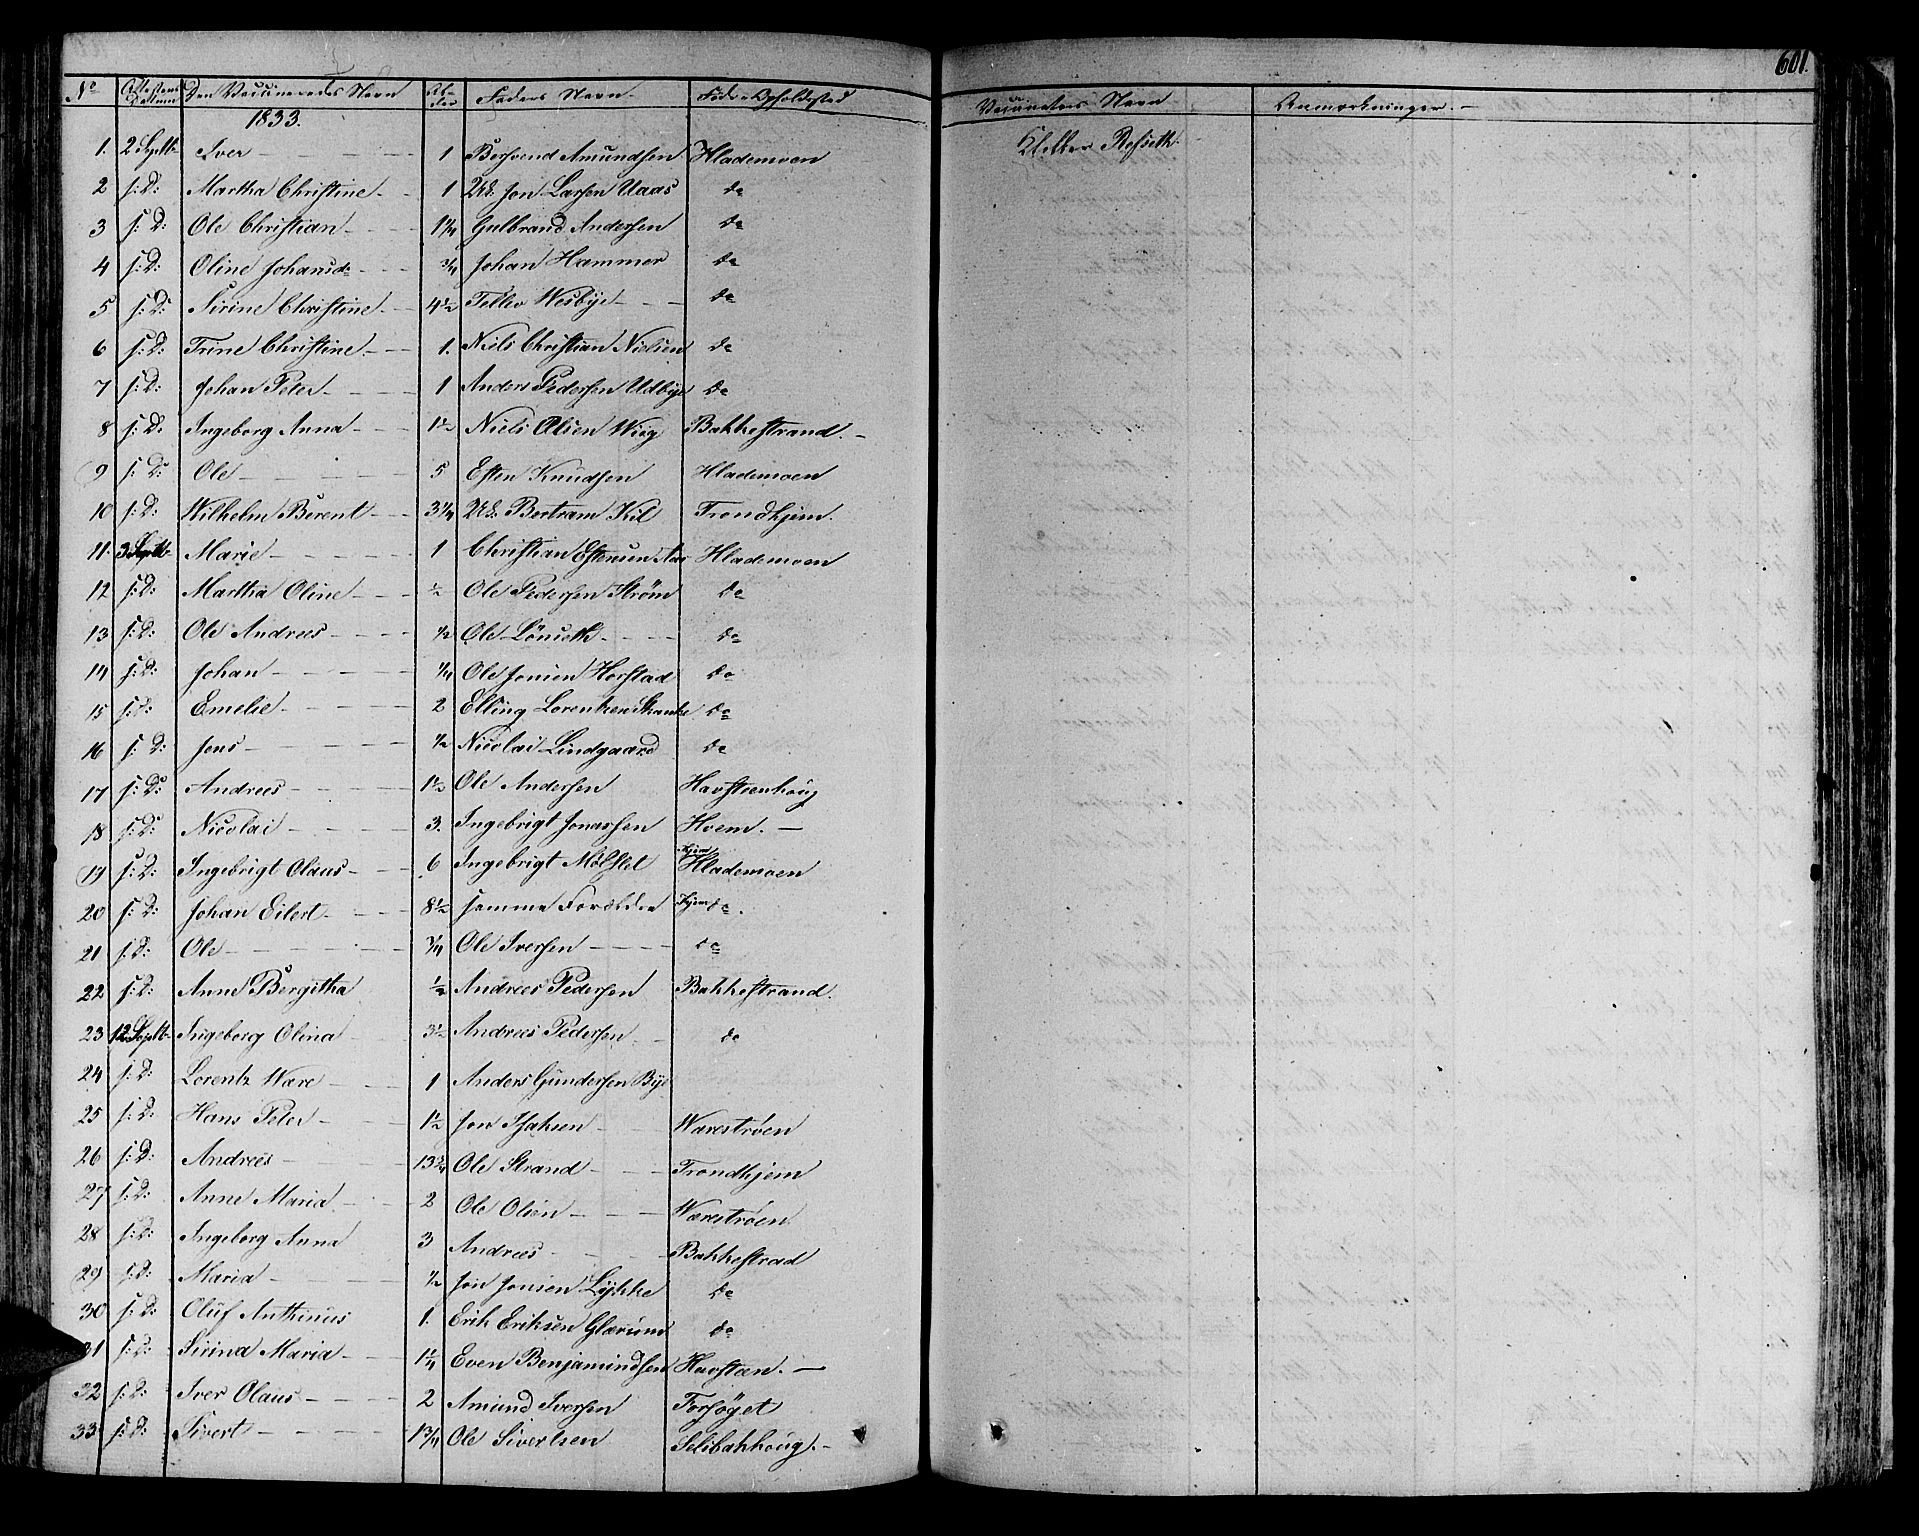 601.
No Attestens Datum Den Vaccineredes Navn Alder Faders Navn. Føde- Opholdssted Vaccineurs Navn Anmærkninger.
1833.
1. 2 Septb Iver 1 Bersvend Amundsen Hlademoen Klokker Rosseth.
2 s: D: Martha Christine 1 Jon Larsen Uaas do
3 s: D: Ole Christian 1 1/4 Gulbrand Andersen do
4 s: D: Oline Johansdr 3/4 Johan Hammer do
5 s: D: Sirine Christine 4 1/2 Tellev Wesbye do
6 s: D: Trine Christine 1. Niels Christian Nielsen do
7 s: D: Johan Peter 1 Anders Pedersen Udbye do
8 s: D: Ingeborg Anna 1 1/2 Niels Olsen Wiig Bakkestrand.
9 s: D: Ole 5 Esten Knudsen Hlademoen
10 s: D: Wilhelm Berent 3 1/4 Bertram Kil Trondhjem.
11. 3 Septb Marie 1 Christian Estensen Aas Hlademoen
12 s: D: Martha Oline 1/2 Ole Pedersen Strøm do
13 s: D: Ole Andreas 1/2 Ole Lønseth do
14 s: D: Johan 1/4 Ole Jonsen Horstad do
15 s: D: Emelie 2 Elling Lorentzen Skanke do
16 s: D: Jens 1/2 Nicolai Lindgaard do
17 s: D: Andreas 1 1/2 Ole Andersen Havstienhoug
18 s: D: Nicolai 3. Ingebrigt Jonassen Hoem.
19 s: D: Ingebrigt Olaus 6 Ingebrigt Mølslet Hjem Hlademoen
20 s: D: Johan Eilert 8 1/2 samme Forældre Hjem do.
21 s: D: Ole 3/4 Ole Iversen do
22 s: D: Anne Bergitha 1/2 Andreas Pedersen Bakkestrand.
23 12 Septb Ingeborg Olina 3 1/2 Andreas Pedersen do
24 s: D: Lorentz Ware 1 Anders Gundersen Bye
25 s: D: Hans Peter 1 1/2 Jon Isaksen Warestrøen
26 s: D: Andreas 13 3/4 Ole Strand Trondhjem
27 s: D: Anne Maria 2 Ole Olsen Warestrøen
28 s: D: Ingeborg Anna 3 Andreas Bakkestrad
29 s: D: Maria 1/2 Jon Jonsen Lykke do
30 s: D: Oluf Anthinus 1. Erik Eriksen Glærum do
31 s: D: Sirina Maria 1 1/4 Even Benjamindsen Havstæn.
32 s: D: Iver Olaus 2 Amund Iversen Forsøget
33 s: D: Sivert 1 3/4 Ole Sivertsen Selsbakhoug.